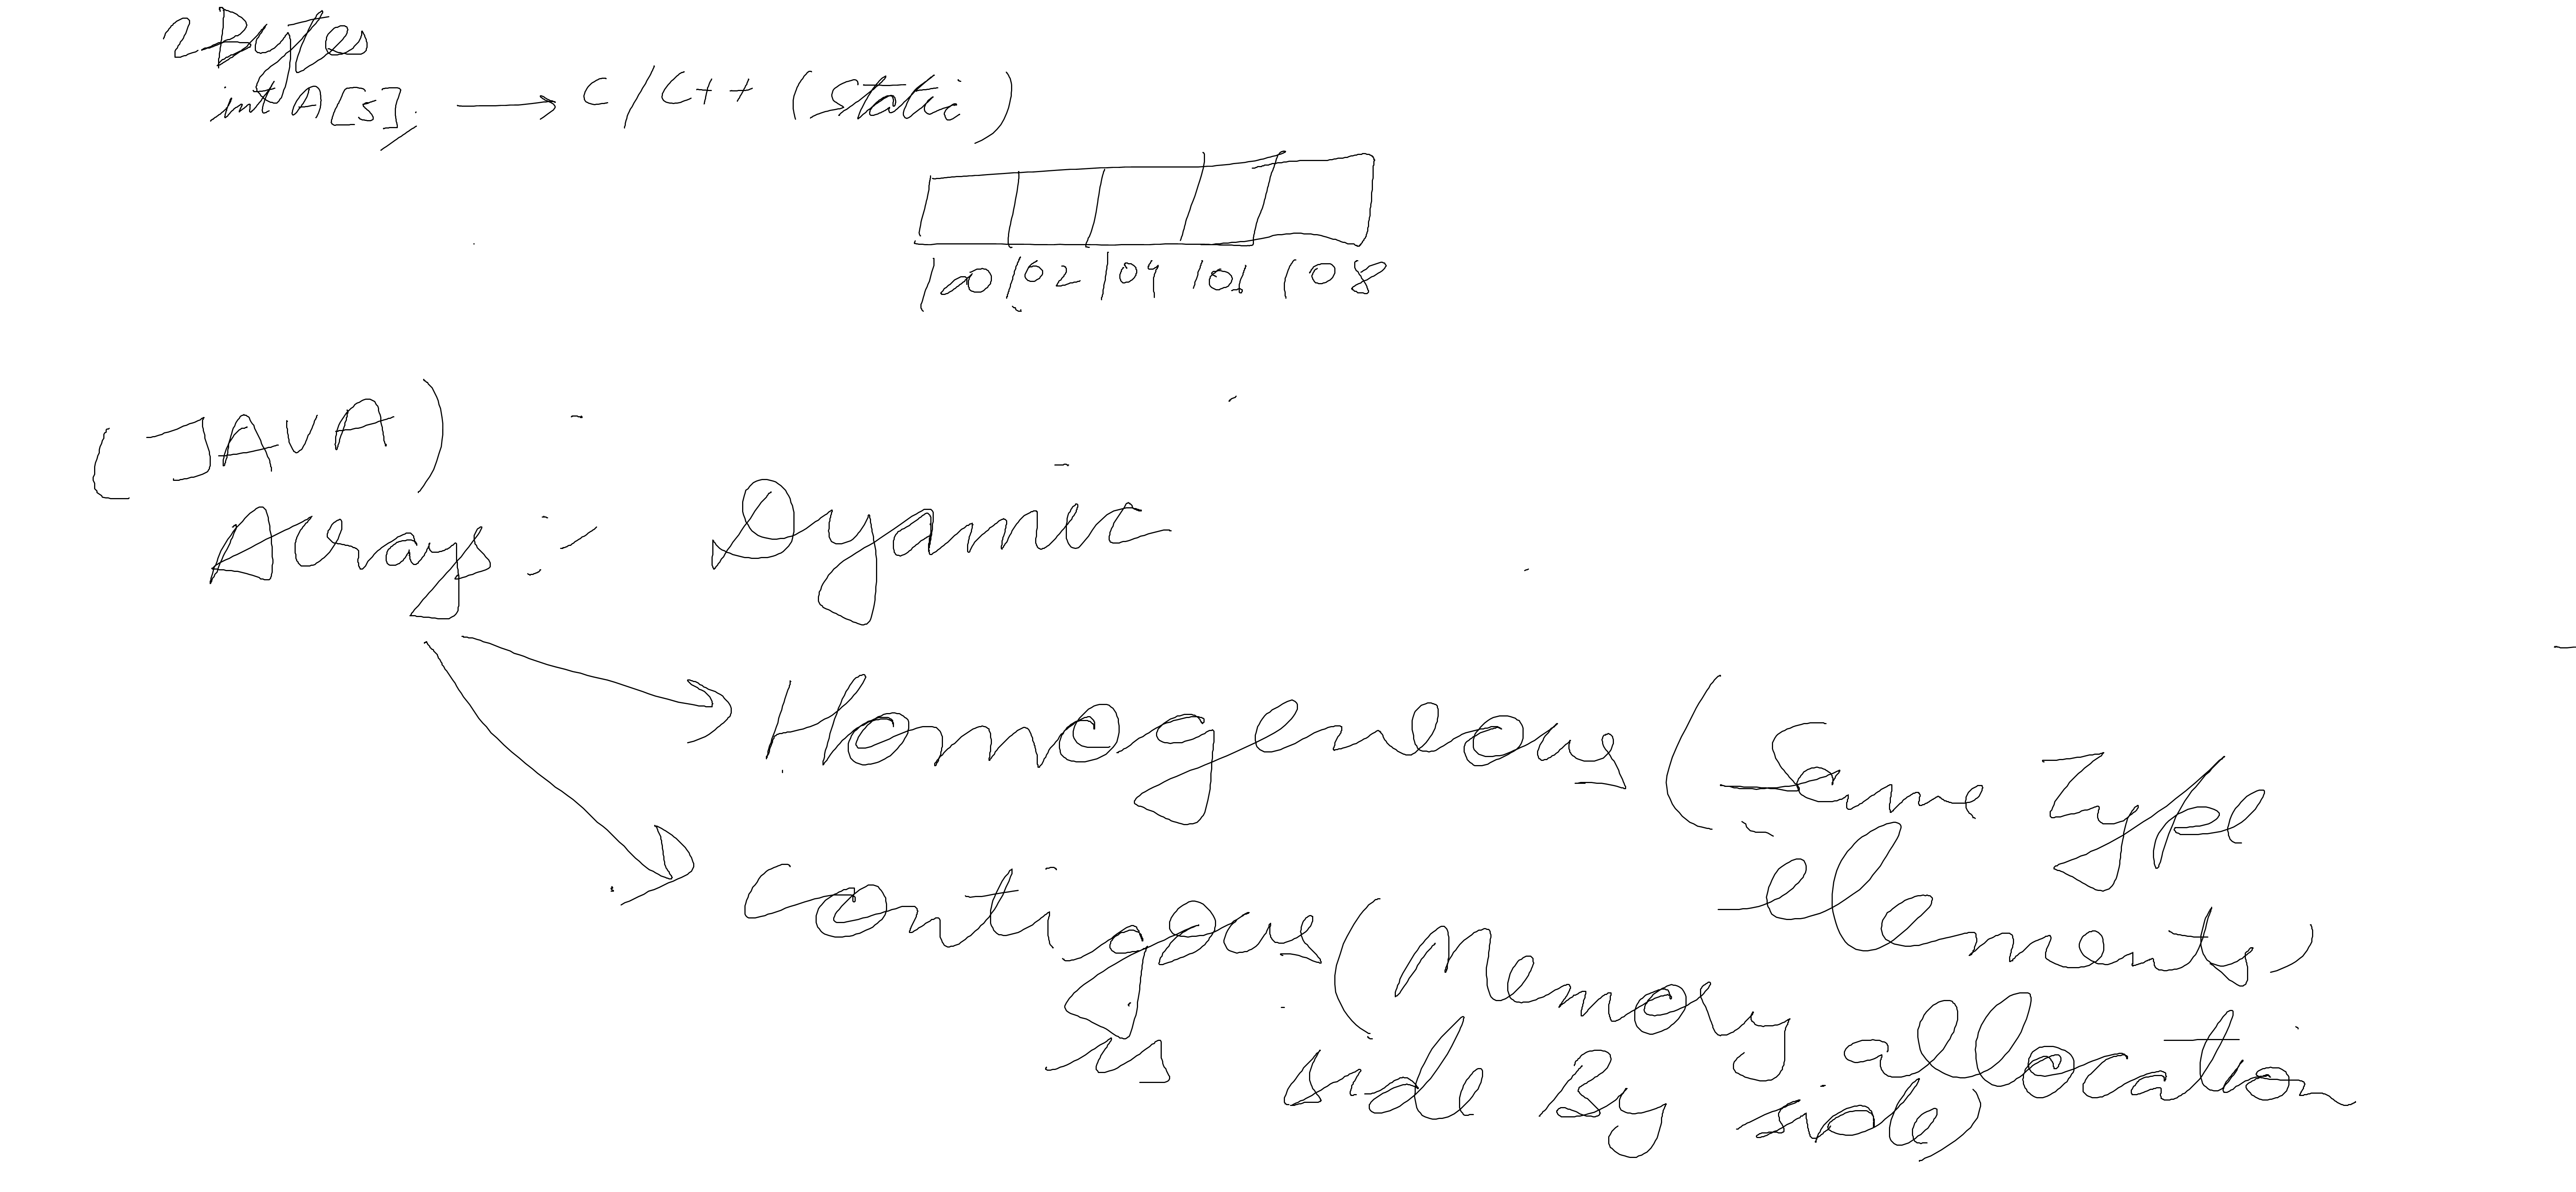 2Bytes
int A[5]; → C/C++ (static)
100 102 104 106 108
(JAVA)
Arrays :- Dyamic
→ Homogeneous (Same Type
elements)
→ Contigous (Memory allocation
is side By side)